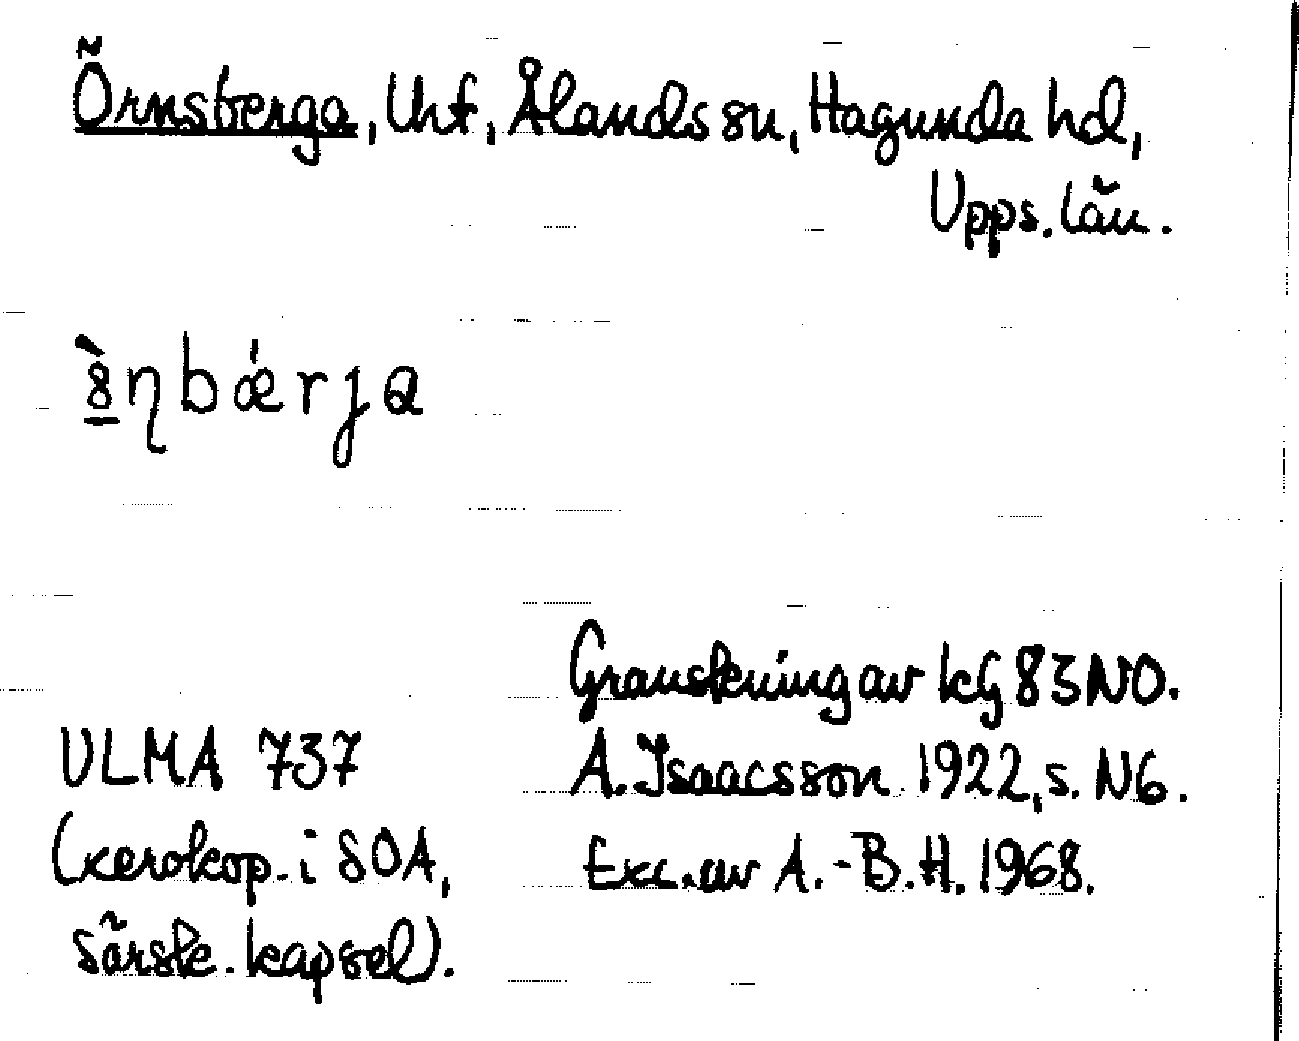 Örnsberga, Uht, Ålands sn, Hagunda hd,
Upps. län.
ꞩ̀ŋbǽrjɑ
Granskning av kG 83 NO.
ULMA 737
A. Isaacsson 1922, s. N6.
(xerokop. i SOA,
Exc. av A.-B.H. 1968.
särsk. kapsel).